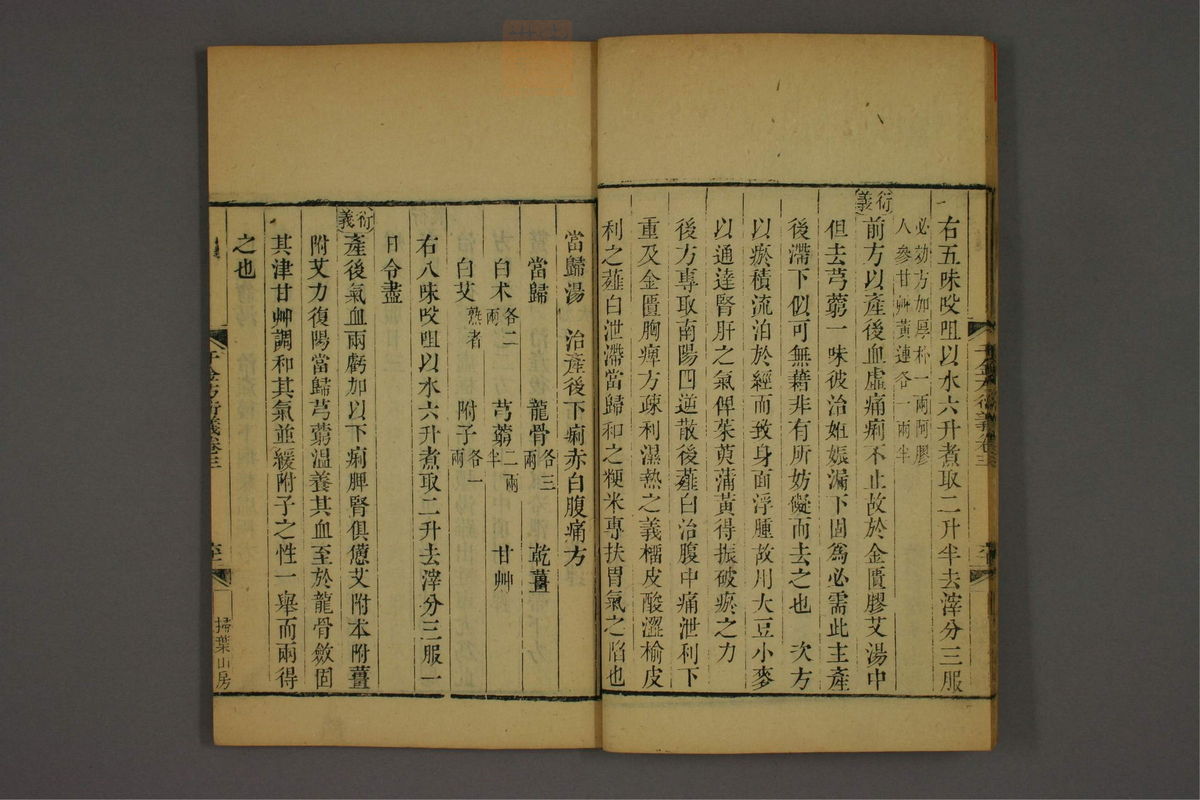 右五味㕮咀以水六升煮取二升半去滓分三服
必効方加厚朴一兩阿膠
人參甘艸黃連各一兩半
衍義
前方以產後血虛痛痢不止故於金匱膠艾湯中
但去芎藭一味彼治姙娠漏下固為必需此主產
後滯下似可無藉非有所妨礙而去之也　次方
以瘀積流泊於經而致身面浮腫故用大豆小麥
以通達腎肝之氣俾茱萸蒲黃得振破瘀之力
後方專取南陽四逆散後薤白治腹中痛泄利下
重及金匱胸痺方疎利濕熱之義橊皮酸澀榆皮
利之薤白泄滯當歸和之粳米專扶胃氣之陷也
千金方衍義卷三
當歸湯　治產後下痢赤白腹痛方
當歸　龍骨各三兩　乾薑
白朮各二兩　芎藭二兩半　甘艸
白艾熟者　附子各一兩
右八味㕮咀以水六升煮取二升去滓分三服一
日令盡
衍義
產後氣血兩虧加以下痢脾腎俱憊艾附本附薑
附艾力復陽當歸芎藭溫養其血至於龍骨斂固
其津甘艸調和其氣並緩附子之性一舉而兩得
之也
千金方衍義卷三
掃葉山房